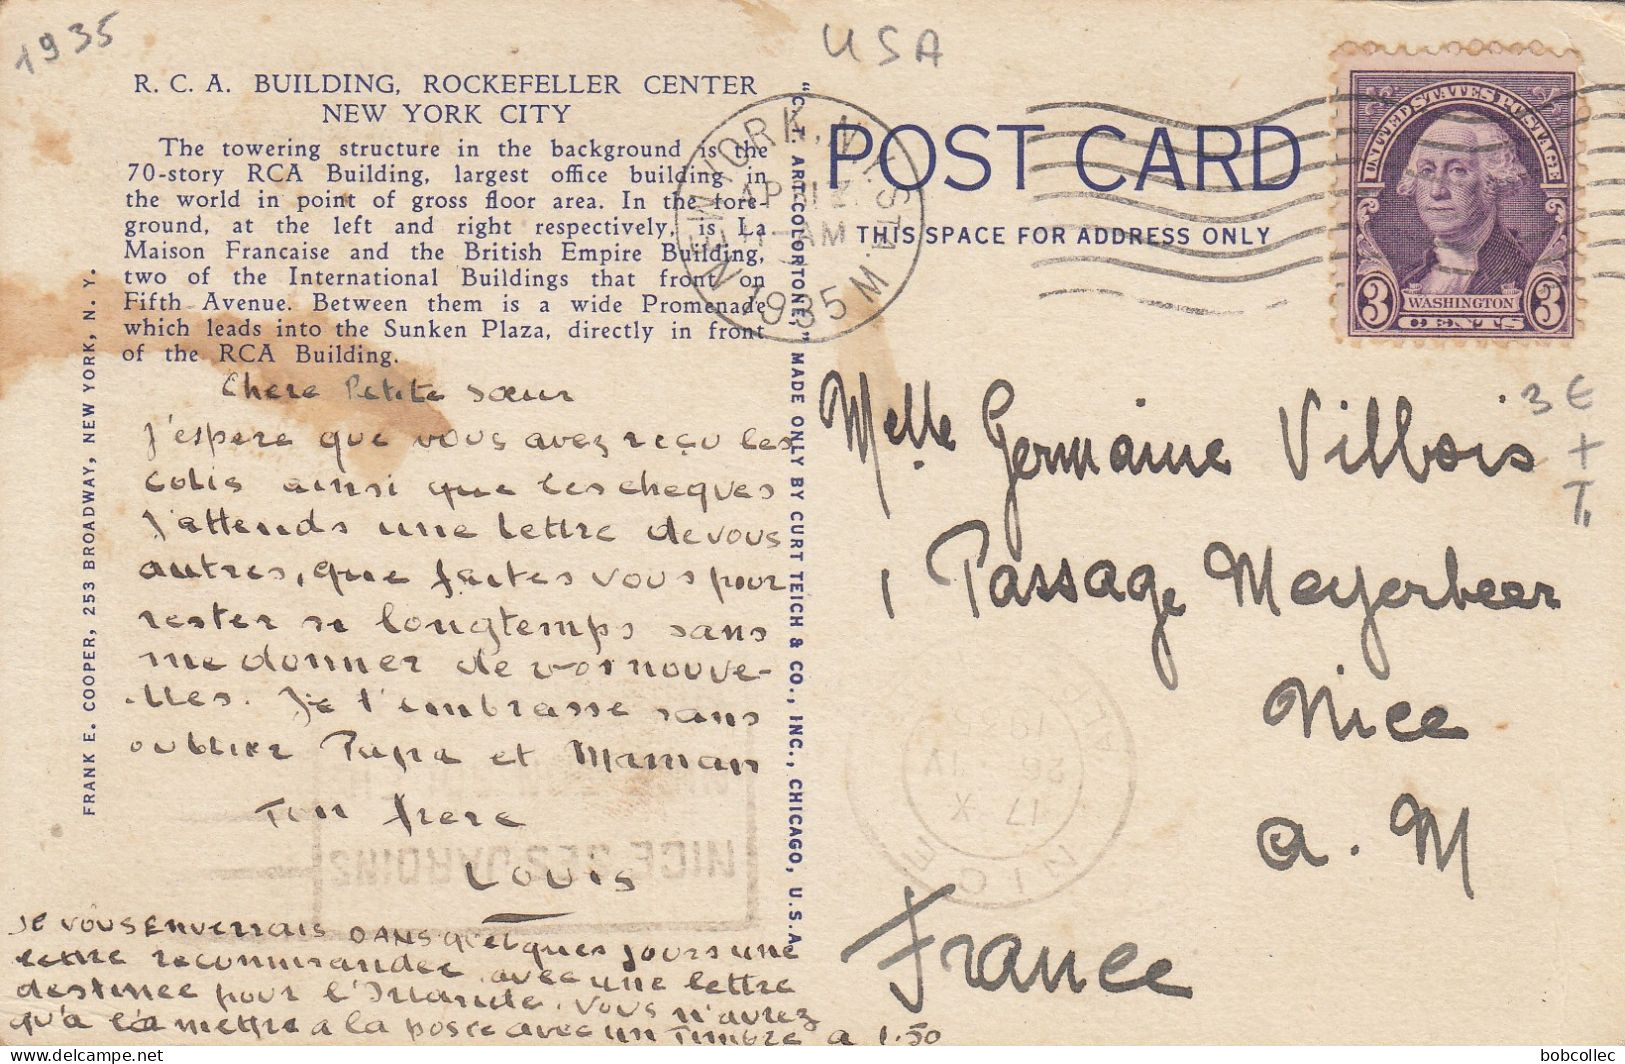 1935
USA
R. C. A. BUILDING, ROCKEFELLER CENTER
NEW YORK CITY
The towering structure in the background is the
70-story RCA Building, largest office building in
the world in point of gross floor area. In the fore-
ground, at the left and right respectively, is La
Maison Francaise and the British Empire Building,
two of the International Buildings that front on
Fifth Avenue. Between them is a wide Promenade
which leads into the Sunken Plaza, directly in front
of the RCA Building.
Chere Petite sœur
J'espere que vous avez reçu les
colis ainsi que les cheques
J'attends une lettre de vous
autres, que faites vous pour
rester si longtemps sans
me donner de vos nouve-
lles. Je t'embrasse sans
oublier Papa et Maman
Ton frere
Louis
Je vous enverrais dans quelques jours une
lettre recommandee avec une lettre
destinee pour l'Irlande. Vous n'avrez
qu'a la mettre a la poste avec un timbre a 1.50
FRANK E. COOPER, 253 BROADWAY, NEW YORK, N. Y.
"C. T. ART-COLORTONE," MADE ONLY BY CURT TEICH & CO., INC., CHICAGO, U.S.A.
NEW YORK, N.Y.
AP 12
11 AM
1935
POST CARD
THIS SPACE FOR ADDRESS ONLY
UNITED STATES POSTAGE
3 WASHINGTON 3
CENTS
3 €
+
T.
Melle Germaine Villbois
1 Passage Meyerbeer
Nice
a. M
France
NICE SES JARDINS
bobcollec